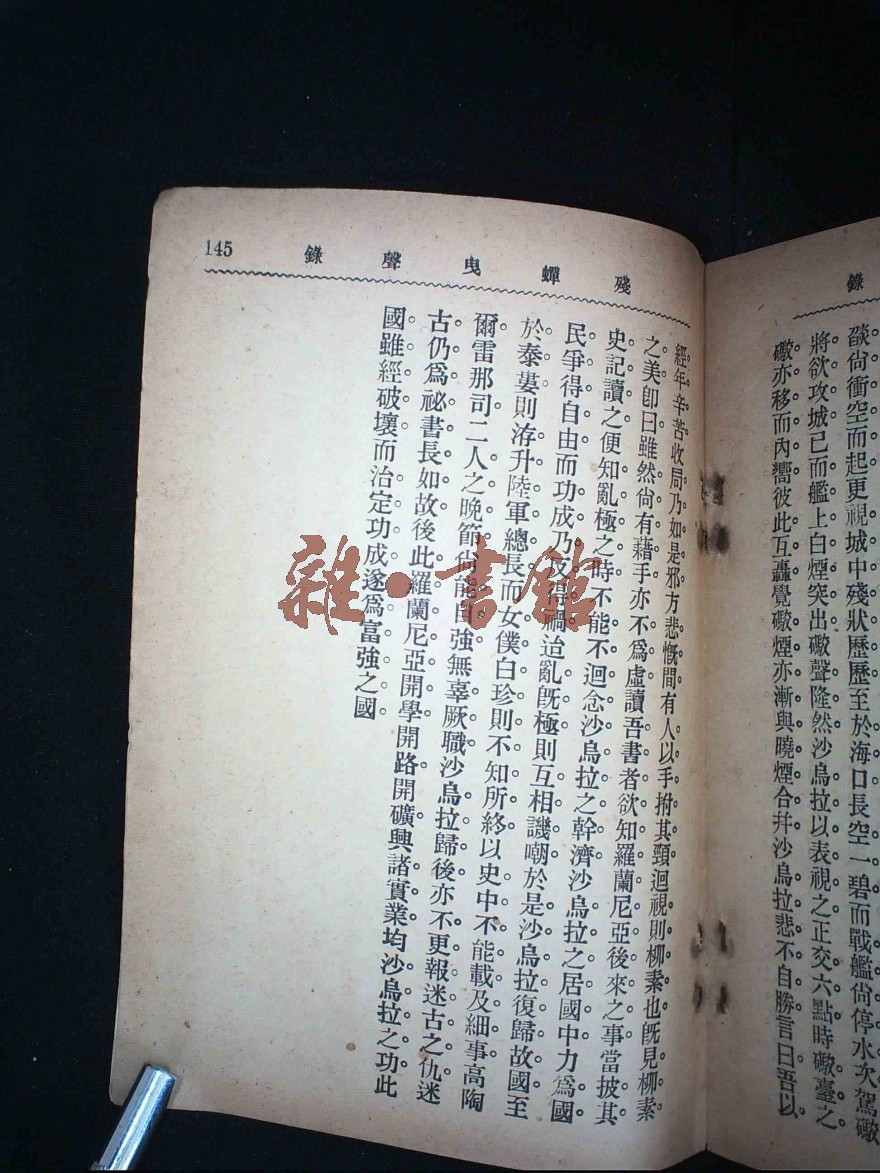 錄
燄尙衝空而起更視城中殘狀歷歷至於海口長空一碧而戰艦尙停水次駕礮
將欲攻城已而艦上白煙突出礮聲隆然沙烏拉以表視之正交六點時礮臺之
礮亦移而內嚮彼此互轟覺礮煙亦漸與曉煙合幷沙烏拉悲不自勝言曰吾以
殘蟬曳聲錄
145
經年辛苦收局乃如是邪方悲慨間有人以手拊其頸迴視則柳素也旣見柳素
之美卽曰雖然尙有藉手亦不爲虛讀吾書者欲知羅蘭尼亞後來之事當披其
史記讀之便知亂極之時不能不迴念沙烏拉之幹濟沙烏拉之居國中力爲國
民爭得自由而功成乃反得禍迨亂旣極則互相譏嘲於是沙烏拉復歸故國至
於泰婁則洊升陸軍總長而女僕白珍則不知所終以史中不能載及細事高陶
爾雷那司二人之晚節尙能自強無辜厥職沙烏拉歸後亦不更報迷古之仇迷
古仍爲祕書長如故後此羅蘭尼亞開學開路開礦興諸實業均沙烏拉之功此
國雖經破壞而治定功成遂爲富強之國
雜·書館